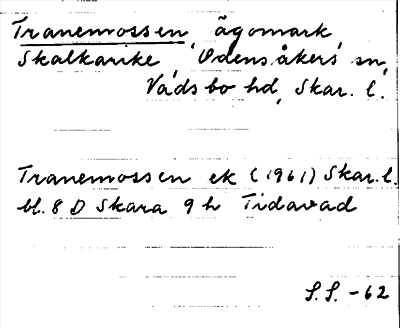 Tranemossen, ägomark,
Skalkarike, Odensåkers sn,
Vadsbo hd, Skar. l.
Tranemossen ek (1961) Skar. l.
bl. 8 D Skara 9 h Tidavad
S.S. -62